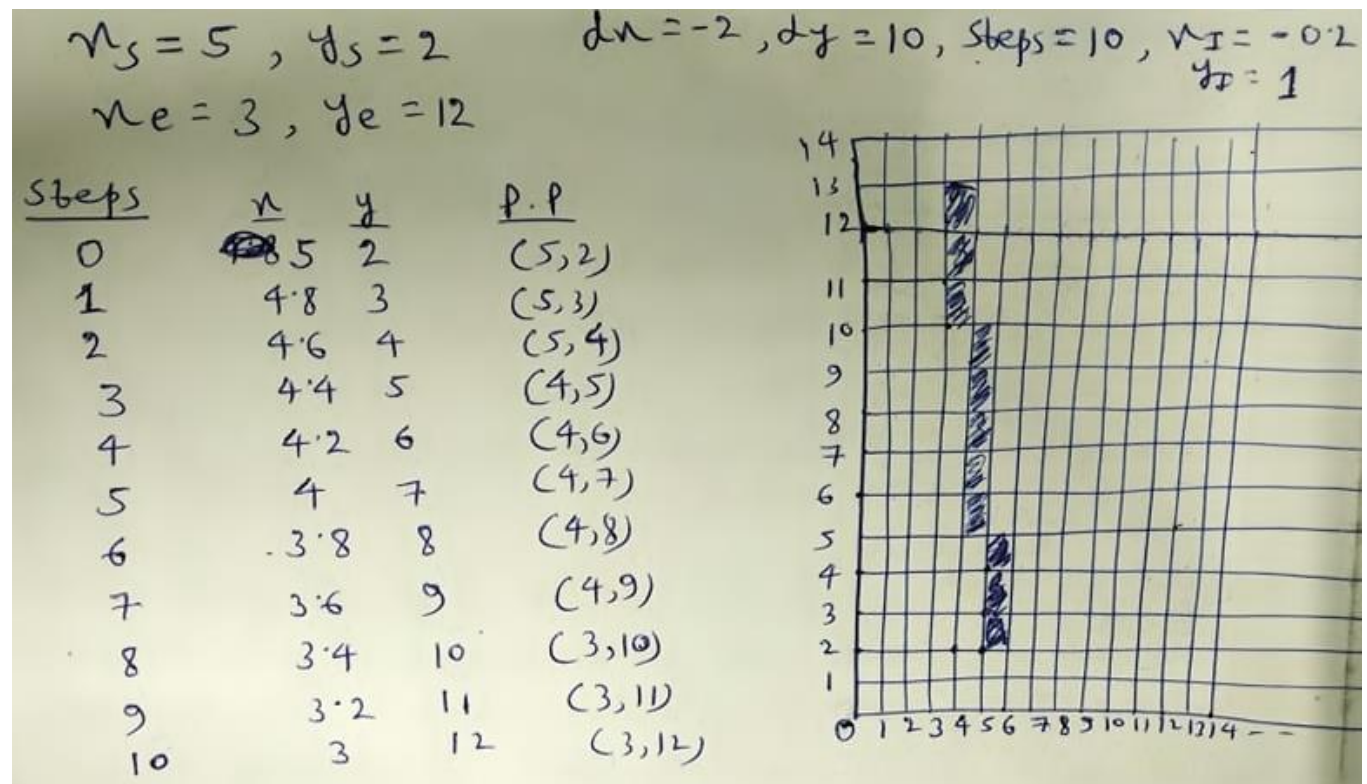 xs = 5 , ys = 2
dx = -2 , dy = 10, steps = 10 , xI = - 0.2
yI = 1
xe = 3 , ye = 12
Steps x y P.P
0 5 2 (5,2)
1 4.8 3 (5,3)
2 4.6 4 (5,4)
3 4.4 5 (4,5)
4 4.2 6 (4,6)
5 4 7 (4,7)
6 3.8 8 (4,8)
7 3.6 9 (4,9)
8 3.4 10 (3,10)
9 3.2 11 (3,11)
10 3 12 (3,12)
14
13
12
11
10
9
8
7
6
5
4
3
2
1
0 1 2 3 4 5 6 7 8 9 10 11 12 13 14 - -